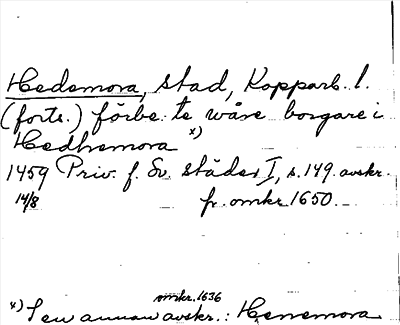 Hedemora, stad, Kopparb. l.
(forts.) förbe: te wåre borgare i
Hedhemora x)
1459 Priv. f. Sv. städer I, s. 149. avskr.
14/8 fr. omkr. 1650.
omkr. 1636
x) I en annan avskr.: Henemora